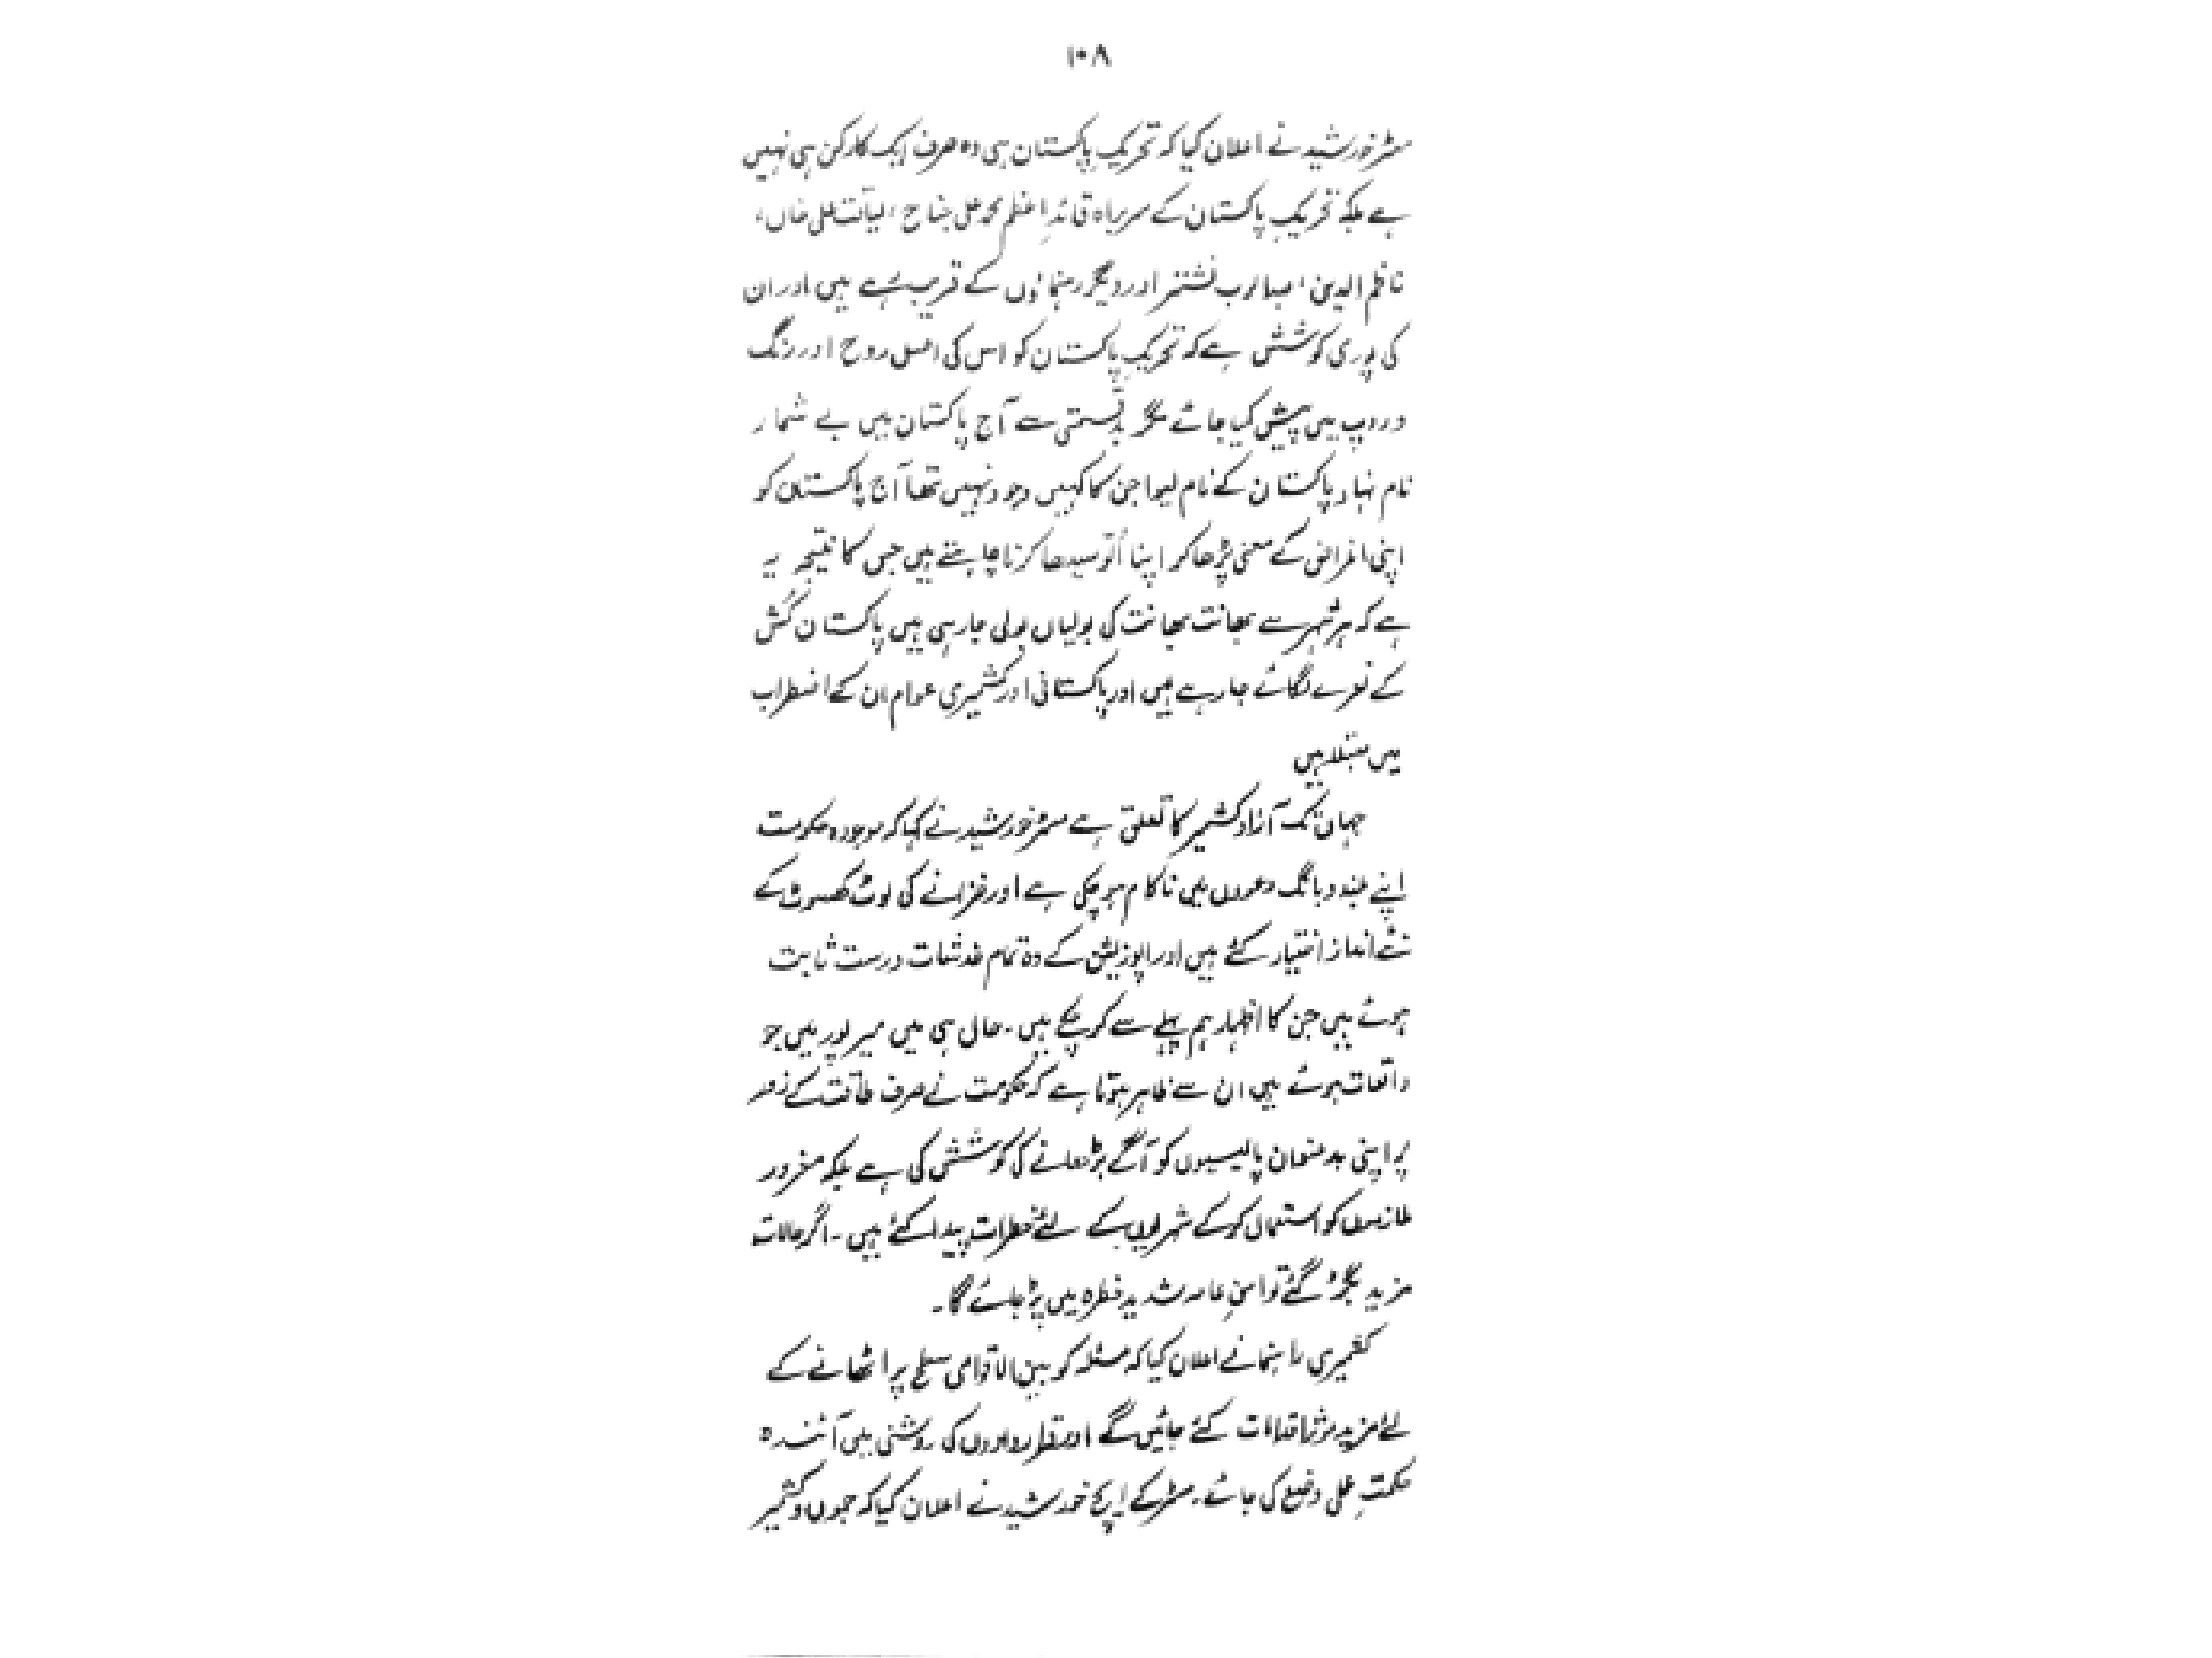 ۱۰۸
مسٹر خورشید نے اعلان کیا کہ تحریکِ پاکستان ہی وہ صرف ایک کارکن ہی نہیں
ہے بلکہ تحریکِ پاکستان کے سربراہ قائدِ اعظم محمد علی جناح ، لیاقت علی خاں،
ناظم الدین ، عبدالرب نشتر اور دیگر رہنماؤں کے قریب رہے ہیں اور ان
کی پوری کوشش ہے کہ تحریکِ پاکستان کو اس کی اصل روح اور رنگ
و روپ میں پیش کیا جائے مگر بدقسمتی سے آج پاکستان میں بے شمار
نام نہاد پاکستان کے نام لیوا جن کا کہیں وجود نہیں تھا آج پاکستان کو
اپنی اغراض کے معنی پڑھا کر اپنا اُلو سیدھا کرنا چاہتے ہیں جس کا نتیجہ یہ
ہے کہ ہر شہر سے بھانت بھانت کی بولیاں بولی جا رہی ہیں پاکستان کُش
کے نعرے لگائے جا رہے ہیں اور پاکستانی اور کشمیری عوام ان کے اضطراب
میں مبتلا ہیں
جہاں تک آزاد کشمیر کا تعلق ہے مسٹر خورشید نے کہا کہ موجودہ حکومت
اپنے بلند و بانگ دعووں میں ناکام ہو چکی ہے اور خزانے کی لوٹ کھسوٹ کے
نئے انداز اختیار کئے ہیں اور اپوزیشن کے وہ تمام خدشات درست ثابت
ہوئے ہیں جن کا اظہار ہم پہلے سے کر چکے ہیں۔ حال ہی میں میرپور میں جو
واقعات ہوئے ہیں ان سے ظاہر ہوتا ہے کہ حکومت نے صرف طاقت کے زور
پر اپنی بدعنوان پالیسیوں کو آگے بڑھانے کی کوشش کی ہے بلکہ مفرور
ملزموں کو استعمال کر کے شہریوں کے لئے خطرات پیدا کئے ہیں۔ اگر حالات
مزید بگڑ گئے تو امنِ عامہ شدید خطرہ میں پڑ جائے گا۔
کشمیری راہنما نے اعلان کیا کہ مسئلہ کو بین الاقوامی سطح پر اٹھانے کے
لئے مزید مؤثر اقدامات کئے جائیں گے اور قراردادوں کی روشنی میں آئندہ
حکمتِ علی وضع کی جائے۔ مسٹر کے ایچ خورشید نے اعلان کیا کہ جموں و کشمیر